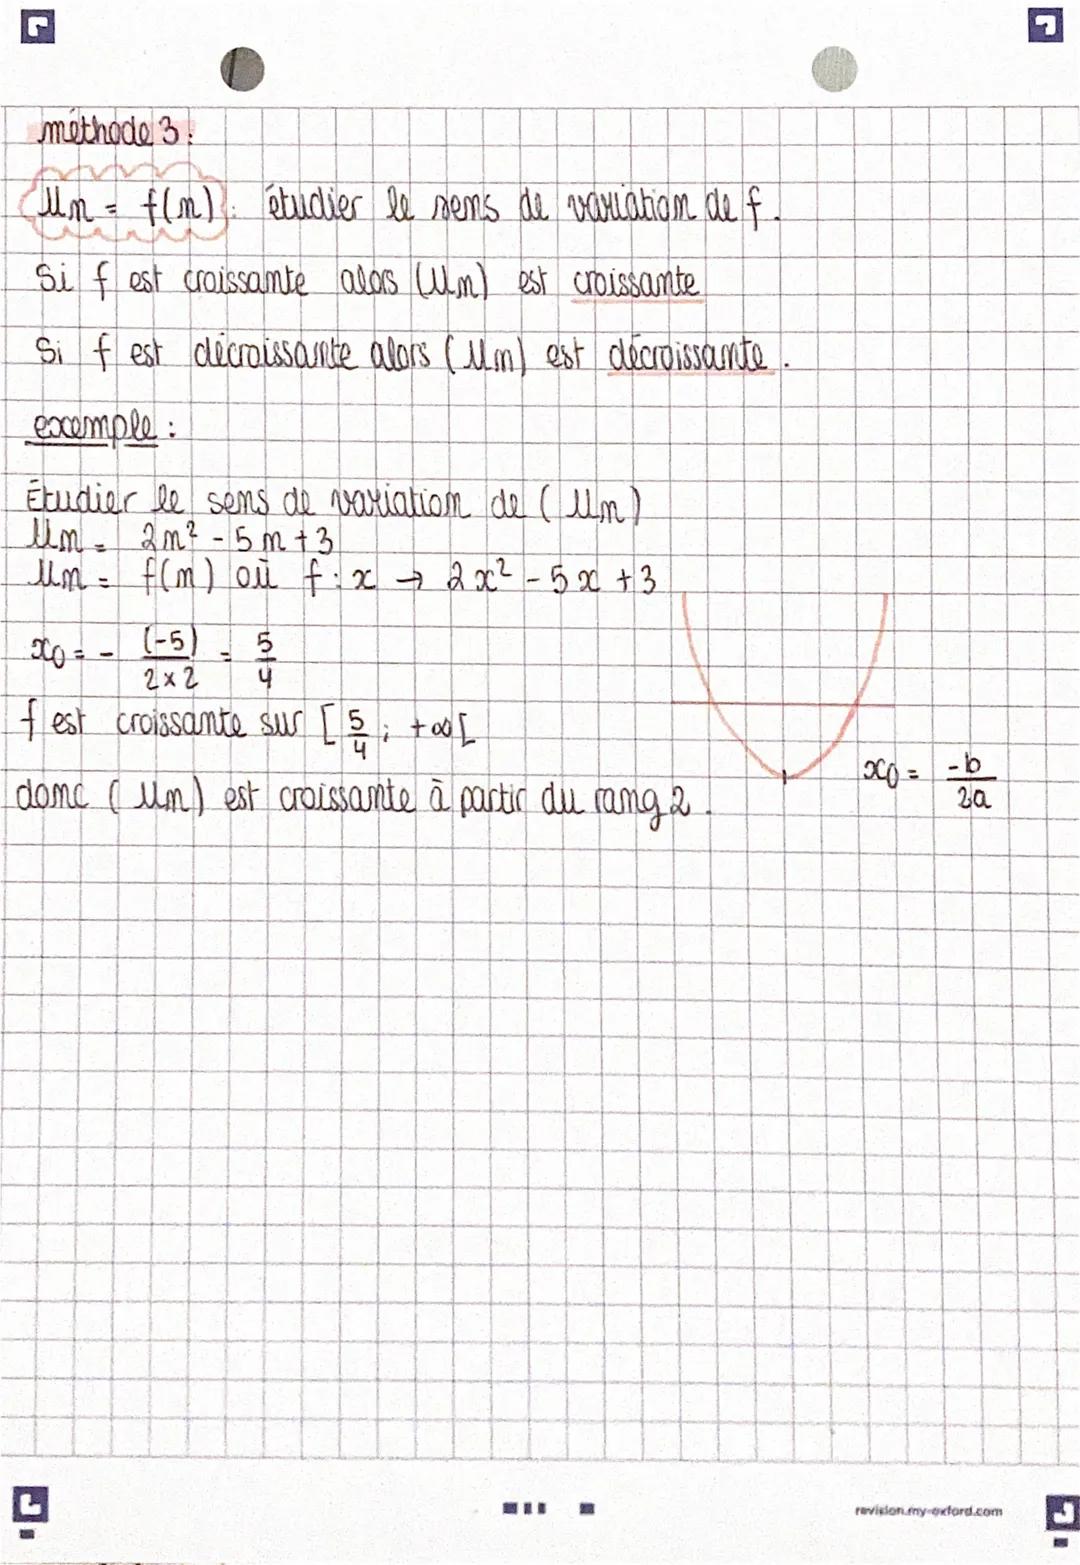 méthode 3 :
Un = f(n) : étudier le sens de variation de f.
Si f est croissante alors (Un) est croissante
Si f est décroissante alors (Un) est décroissante.
exemple :
Étudier le sens de variation de (Un)
Un = 2n² - 5n + 3
Un = f(n) où f : x → 2x² - 5x + 3
x₀ = - (-5)/(2×2) = 5/4
f est croissante sur [5/4 ; +∞[
x₀ = -b/2a
donc (Un) est croissante à partir du rang 2.
revision.my-oxford.com